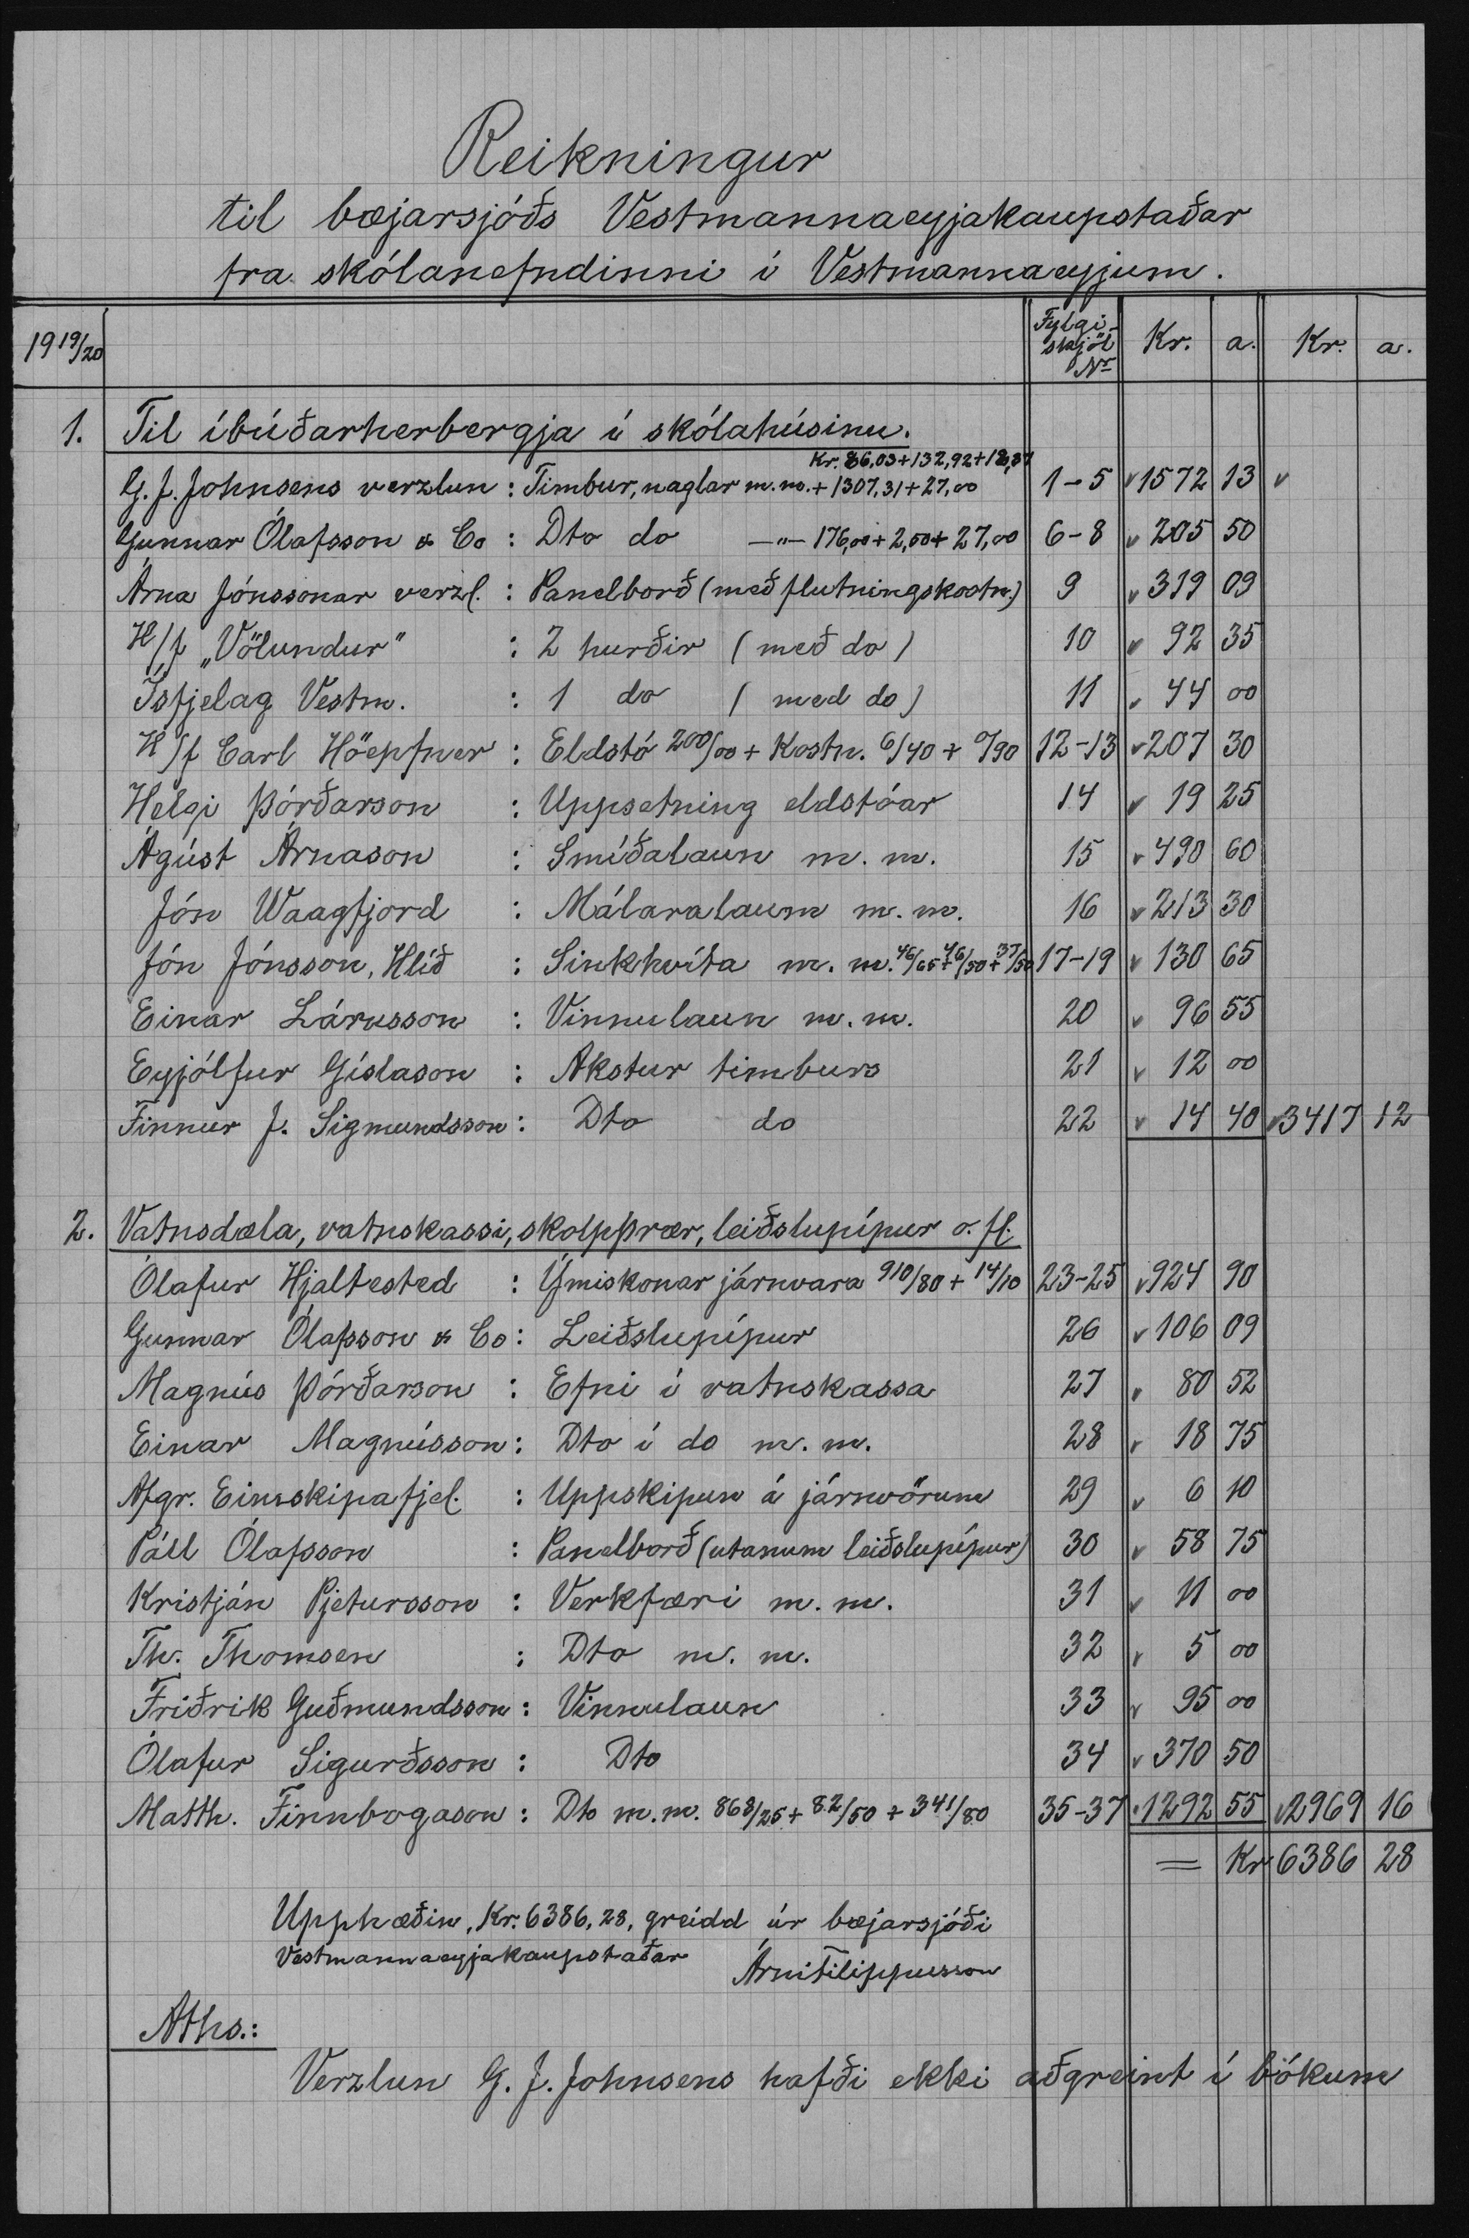 Reikningur
til bæjarsjóðs Vestmannaeyjakaupstaðar
fra skólanefndinni í Vestmannaeyjum.
19 19/20 Fylgi- skjöl Nr Kr. a. Kr. a.
1. Til íbúðarherbergja í skólahúsinu.
Kr. 86,03+132,92+18,87
G. J. Johnsens verzlun : Timbur, naglar m.m. + 1307,31 + 27,00 1-5 1572 13
Gunnar Ólafsson & Co : Dto do —"— 176,00 + 2,50 + 27,00 6-8 205 50
Árna Jónssonar verzl. : Panelborð (með flutningskostn.) 9 319 09
H/f „Völundur" : 2 hurðir (með do) 10 92 35
Ísfjelag Vestm. : 1 do (með do) 11 44 00
H/f Carl Höepfner : Eldstó 200/00 + Kostn. 6/40 + 0/90 12-13 207 30
Helgi Þórðarson : Uppsetning eldstóar 14 19 25
Ágúst Árnason : Smíðalaun m. m. 15 490 60
Jón Waagfjord : Málaralaun m. m. 16 213 30
Jón Jónsson, Hlíð : Sinkhvíta m. m. 46/65 + 46/50 + 37/50 17-19 130 65
Einar Lárusson : Vinnulaun m. m. 20 96 55
Eyjólfur Gíslason : Akstur timburs 21 12 00
Finnur J. Sigmundsson : Dto do 22 14 40 3417 12
2. Vatnsdæla, vatnskassi, skolpþrær, leiðslupípur o. fl.
Ólafur Hjaltested : Ýmiskonar járnvara 910/80 + 14/10 23-25 924 90
Gunnar Ólafsson & Co : Leiðslupípur 26 106 09
Magnús Þórðarson : Efni í vatnskassa 27 80 52
Einar Magnússon : Dto í do m. m. 28 18 75
Afgr. Eimskipafjel. : Uppskipun á járnvörum 29 6 10
Páll Ólafsson : Panelborð (utanum leiðslupípur) 30 58 75
Kristján Pjetursson : Verkfæri m. m. 31 11 00
Th. Thomsen : Dto m. m. 32 5 00
Friðrik Guðmundsson : Vinnulaun 33 95 00
Ólafur Sigurðsson : Dto 34 370 50
Matth. Finnbogason : Dto m. m. 868/25 + 82/50 + 341/80 35-37 1292 55 2969 16
= Kr 6386 28
Upphæðin, Kr. 6386,28, greidd úr bæjarsjóði
Vestmannaeyjakaupstaðar Árni Filippusson
Aths.:
Verzlun G. J. Johnsens hafði ekki aðgreint í bókum